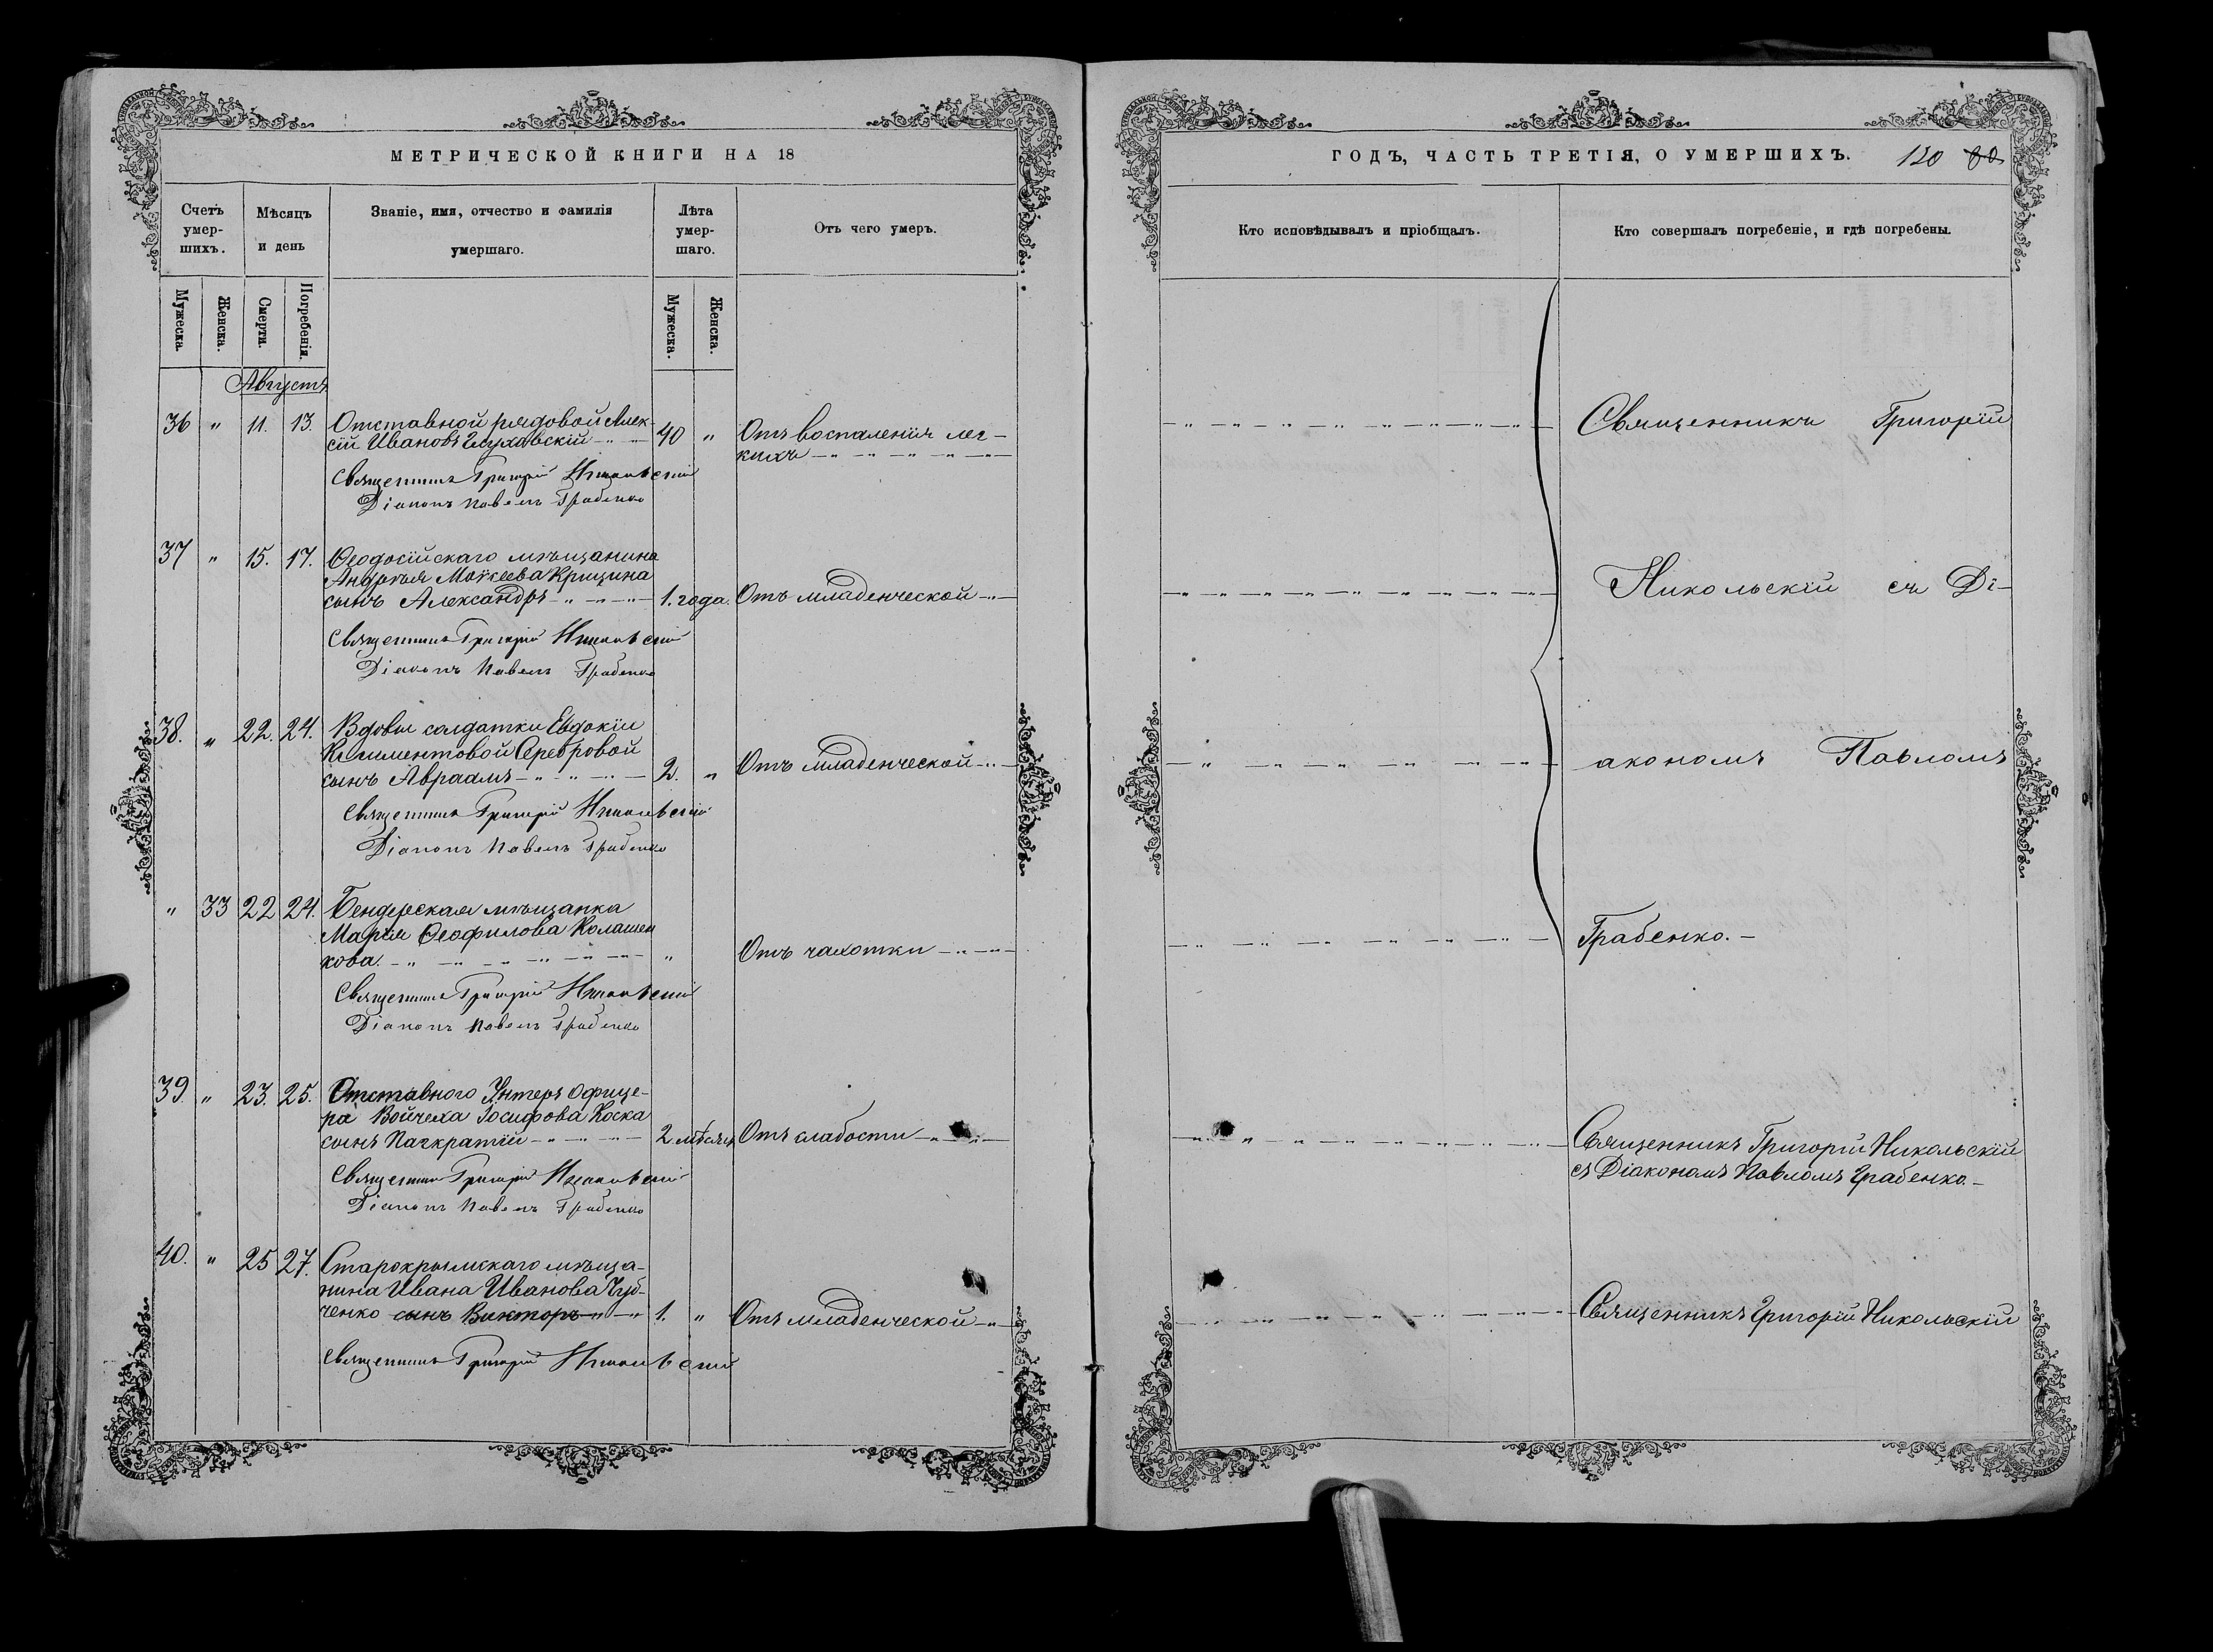 МЕТРИЧЕСКОЙ КНИГИ НА 18
Счетъ умер-шихъ.
Мѣсяцъ и день
Званіе, имя, отчество и фамилія умершаго.
Лѣта умер-шаго.
Отъ чего умеръ.
Мужеска.
Женска.
Смерти.
Погребенія.
Мужеска.
Женска.
Августъ
36 " 11. 13. Отставной рядовой Алек-
сій Ивановъ Глуховскій 40 " Отъ воспаленія лег-
кихъ
Священникъ Григорій Никольскій
Діаконъ Павелъ Грабенко
37 " 15. 17. Ѳеодосійскаго мѣщанина
Андрея Моисеева Крицина
сынъ Александръ 1. года. Отъ младенческой
Священникъ Григорій Никольскій
Діаконъ Павелъ Грабенко
38. " 22. 24. Вдовы солдатки Евдокіи
Климентовой Серебровой
сынъ Авраамъ 2. " Отъ младенческой
Священникъ Григорій Никольскій
Діаконъ Павелъ Грабенко
" 33 22 24. Бендерская мѣщанка
Марія Ѳеофилова Колашен
кова. " Отъ чахотки
Священникъ Григорій Никольскій
Діаконъ Павелъ Грабенко
39. " 23. 25. Отставного Унтеръ Офице-
ра Войчеха Іосифова Коска
сынъ Панкратій 2 мѣсяц. Отъ слабости
Священникъ Григорій Никольскій
Діаконъ Павелъ Грабенко
40. " 25 27. Старокрымскаго мѣща-
нина Ивана Иванова Чуб-
ченко сынъ Викторъ 1. " Отъ младенческой
Священникъ Григорій Никольскій
ГОДЪ, ЧАСТЬ ТРЕТІЯ, О УМЕРШИХЪ. 120
Кто исповѣдывалъ и пріобщалъ.
Кто совершалъ погребеніе, и гдѣ погребены.
Священникъ Григорій
Никольскій съ Ді-
акономъ Павломъ
Грабенко.
Священникъ Григорій Никольскій
съ Діакономъ Павломъ Грабенко.
Священникъ Григорій Никольскій